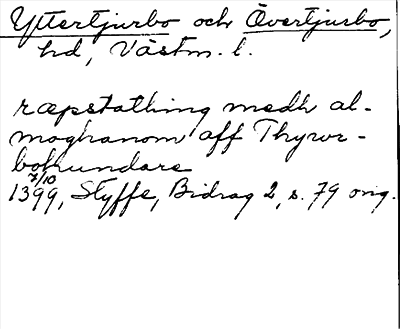 Yttertjurbo och Övertjurbo,
hd, Västm. l.
ræpstathing medh al-
moghanom aff Thyrir-
bohundare
7/10
1399, Styffe, Bidrag 2, s. 79 orig.